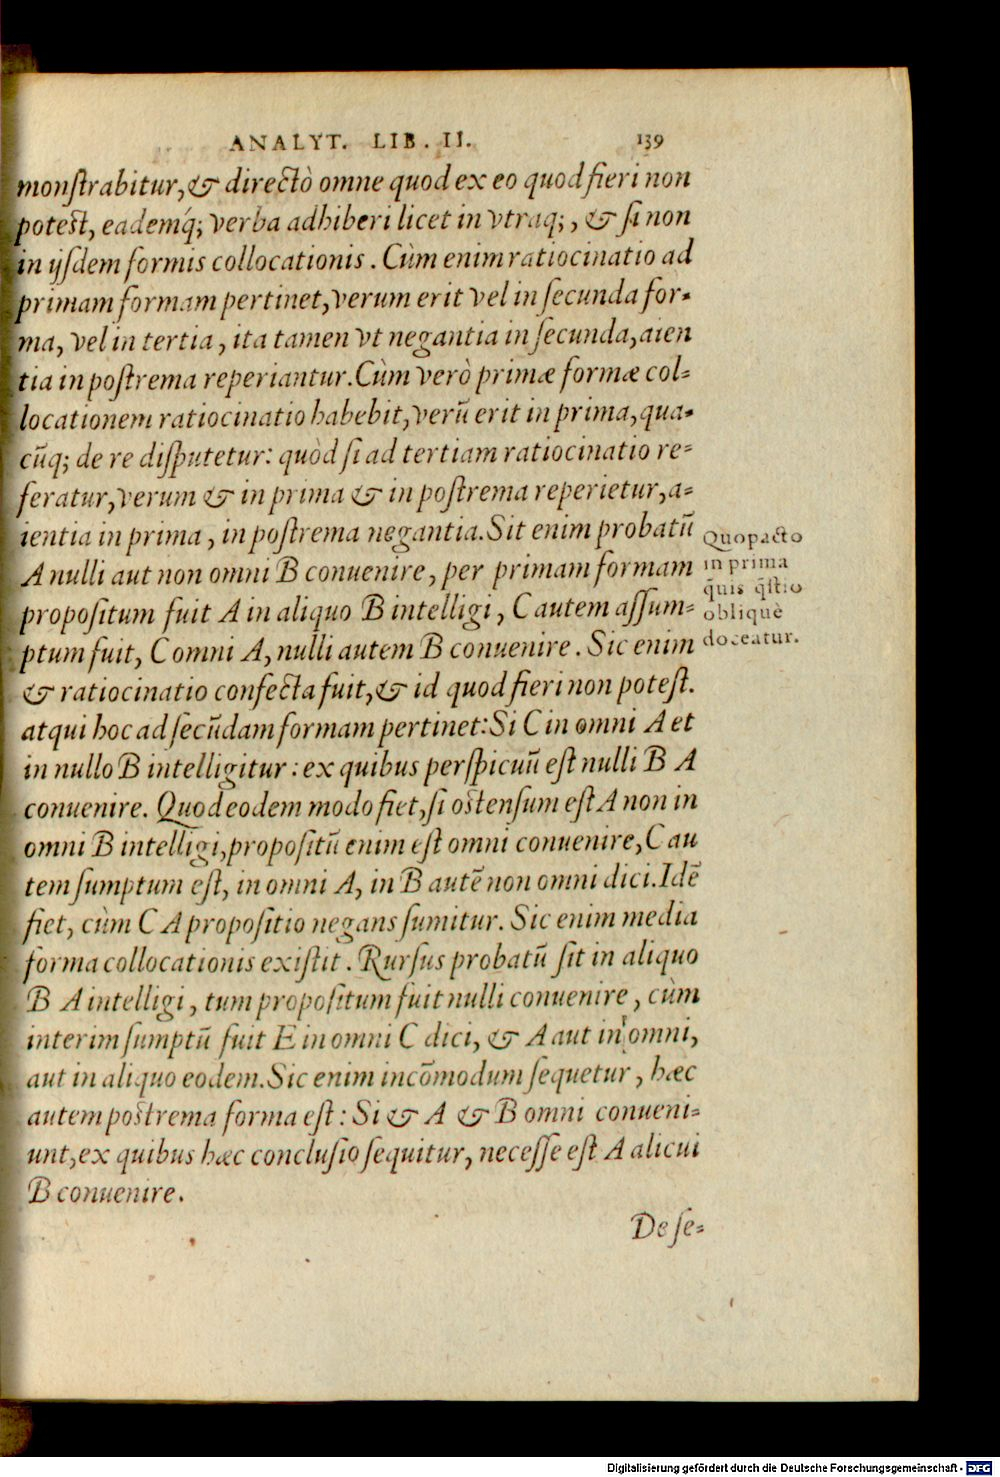 ANALYT. LIB. II. 139
monſtrabitur, & directò omne quod ex eo quod fieri non
poteſt, eademq́; verba adhiberi licet in vtraq;, & ſi non
in ijſdem formis collocationis. Cùm enim ratiocinatio ad
primam formam pertinet, verum erit vel in ſecunda for-
ma, vel in tertia, ita tamen vt negantia in ſecunda, aien
tia in poſtrema reperiantur. Cùm verò primæ formæ col-
locationem ratiocinatio habebit, verũ erit in prima, qua-
cũq; de re diſputetur: quòd ſi ad tertiam ratiocinatio re-
feratur, verum & in prima & in poſtrema reperietur, a-
ientia in prima, in poſtrema negantia. Sit enim probatũ
A nulli aut non omni B conuenire, per primam formam
propoſitum fuit A in aliquo B intelligi, C autem aſſum-
ptum fuit, C omni A, nulli autem B conuenire. Sic enim
& ratiocinatio confecta fuit, & id quod fieri non poteſt.
atqui hoc ad ſecũdam formam pertinet: Si C in omni A et
in nullo B intelligitur: ex quibus perſpicuũ eſt nulli B A
conuenire. Quod eodem modo fiet, ſi oſtenſum eſt A non in
omni B intelligi, propoſitũ enim eſt omni conuenire, C au
tem ſumptum eſt, in omni A, in B autẽ non omni dici. Idẽ
fiet, cùm C A propoſitio negans ſumitur. Sic enim media
forma collocationis exiſtit. Rurſus probatũ ſit in aliquo
B A intelligi, tum propoſitum fuit nulli conuenire, cùm
interim ſumptũ fuit E in omni C dici, & A aut in omni,
aut in aliquo eodem. Sic enim incõmodum ſequetur, hæc
autem poſtrema forma eſt: Si & A & B omni conueni-
unt, ex quibus hæc concluſio ſequitur, neceſſe eſt A alicui
B conuenire.
De ſe-
Quo pacto
in prima
q̃uis q̃ſtio
obliquè
doceatur.
Digitalisierung gefördert durch die Deutsche Forschungsgemeinschaft - DFG